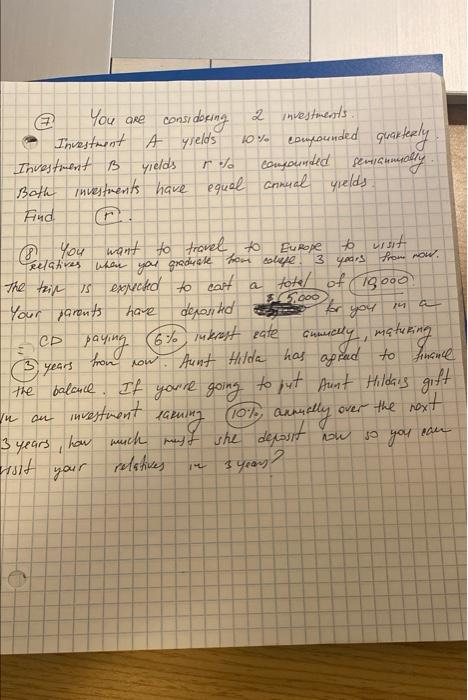 ⑦ You are considering 2 investments.
Investment A yields 10% compounded quarterly.
Investment B yields r % compounded semiannually.
Both investments have equal annual yields.
Find r.
⑧ You want to travel to Europe to visit
relatives when you graduate from college 3 years from now.
The trip is expected to cost a total of
Your parents have deposited $5,000 for you in a
CD paying 6% interest rate annually, maturing
3 years from now. Aunt Hilda has agreed to finance
the balance. If you're going to put Aunt Hilda's gift
in an investment earning 10% annually over the next
3 years, how much must she deposit now so you can
visit your relatives in 3 years?